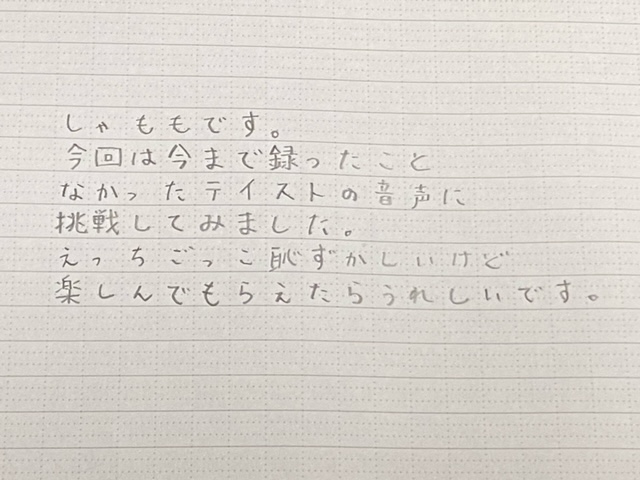 しゃももです。
今回は今まで録ったこと
なかったテイストの音声に
挑戦してみました。
えっちごっこ恥ずかしいけど
楽しんでもらえたらうれしいです。